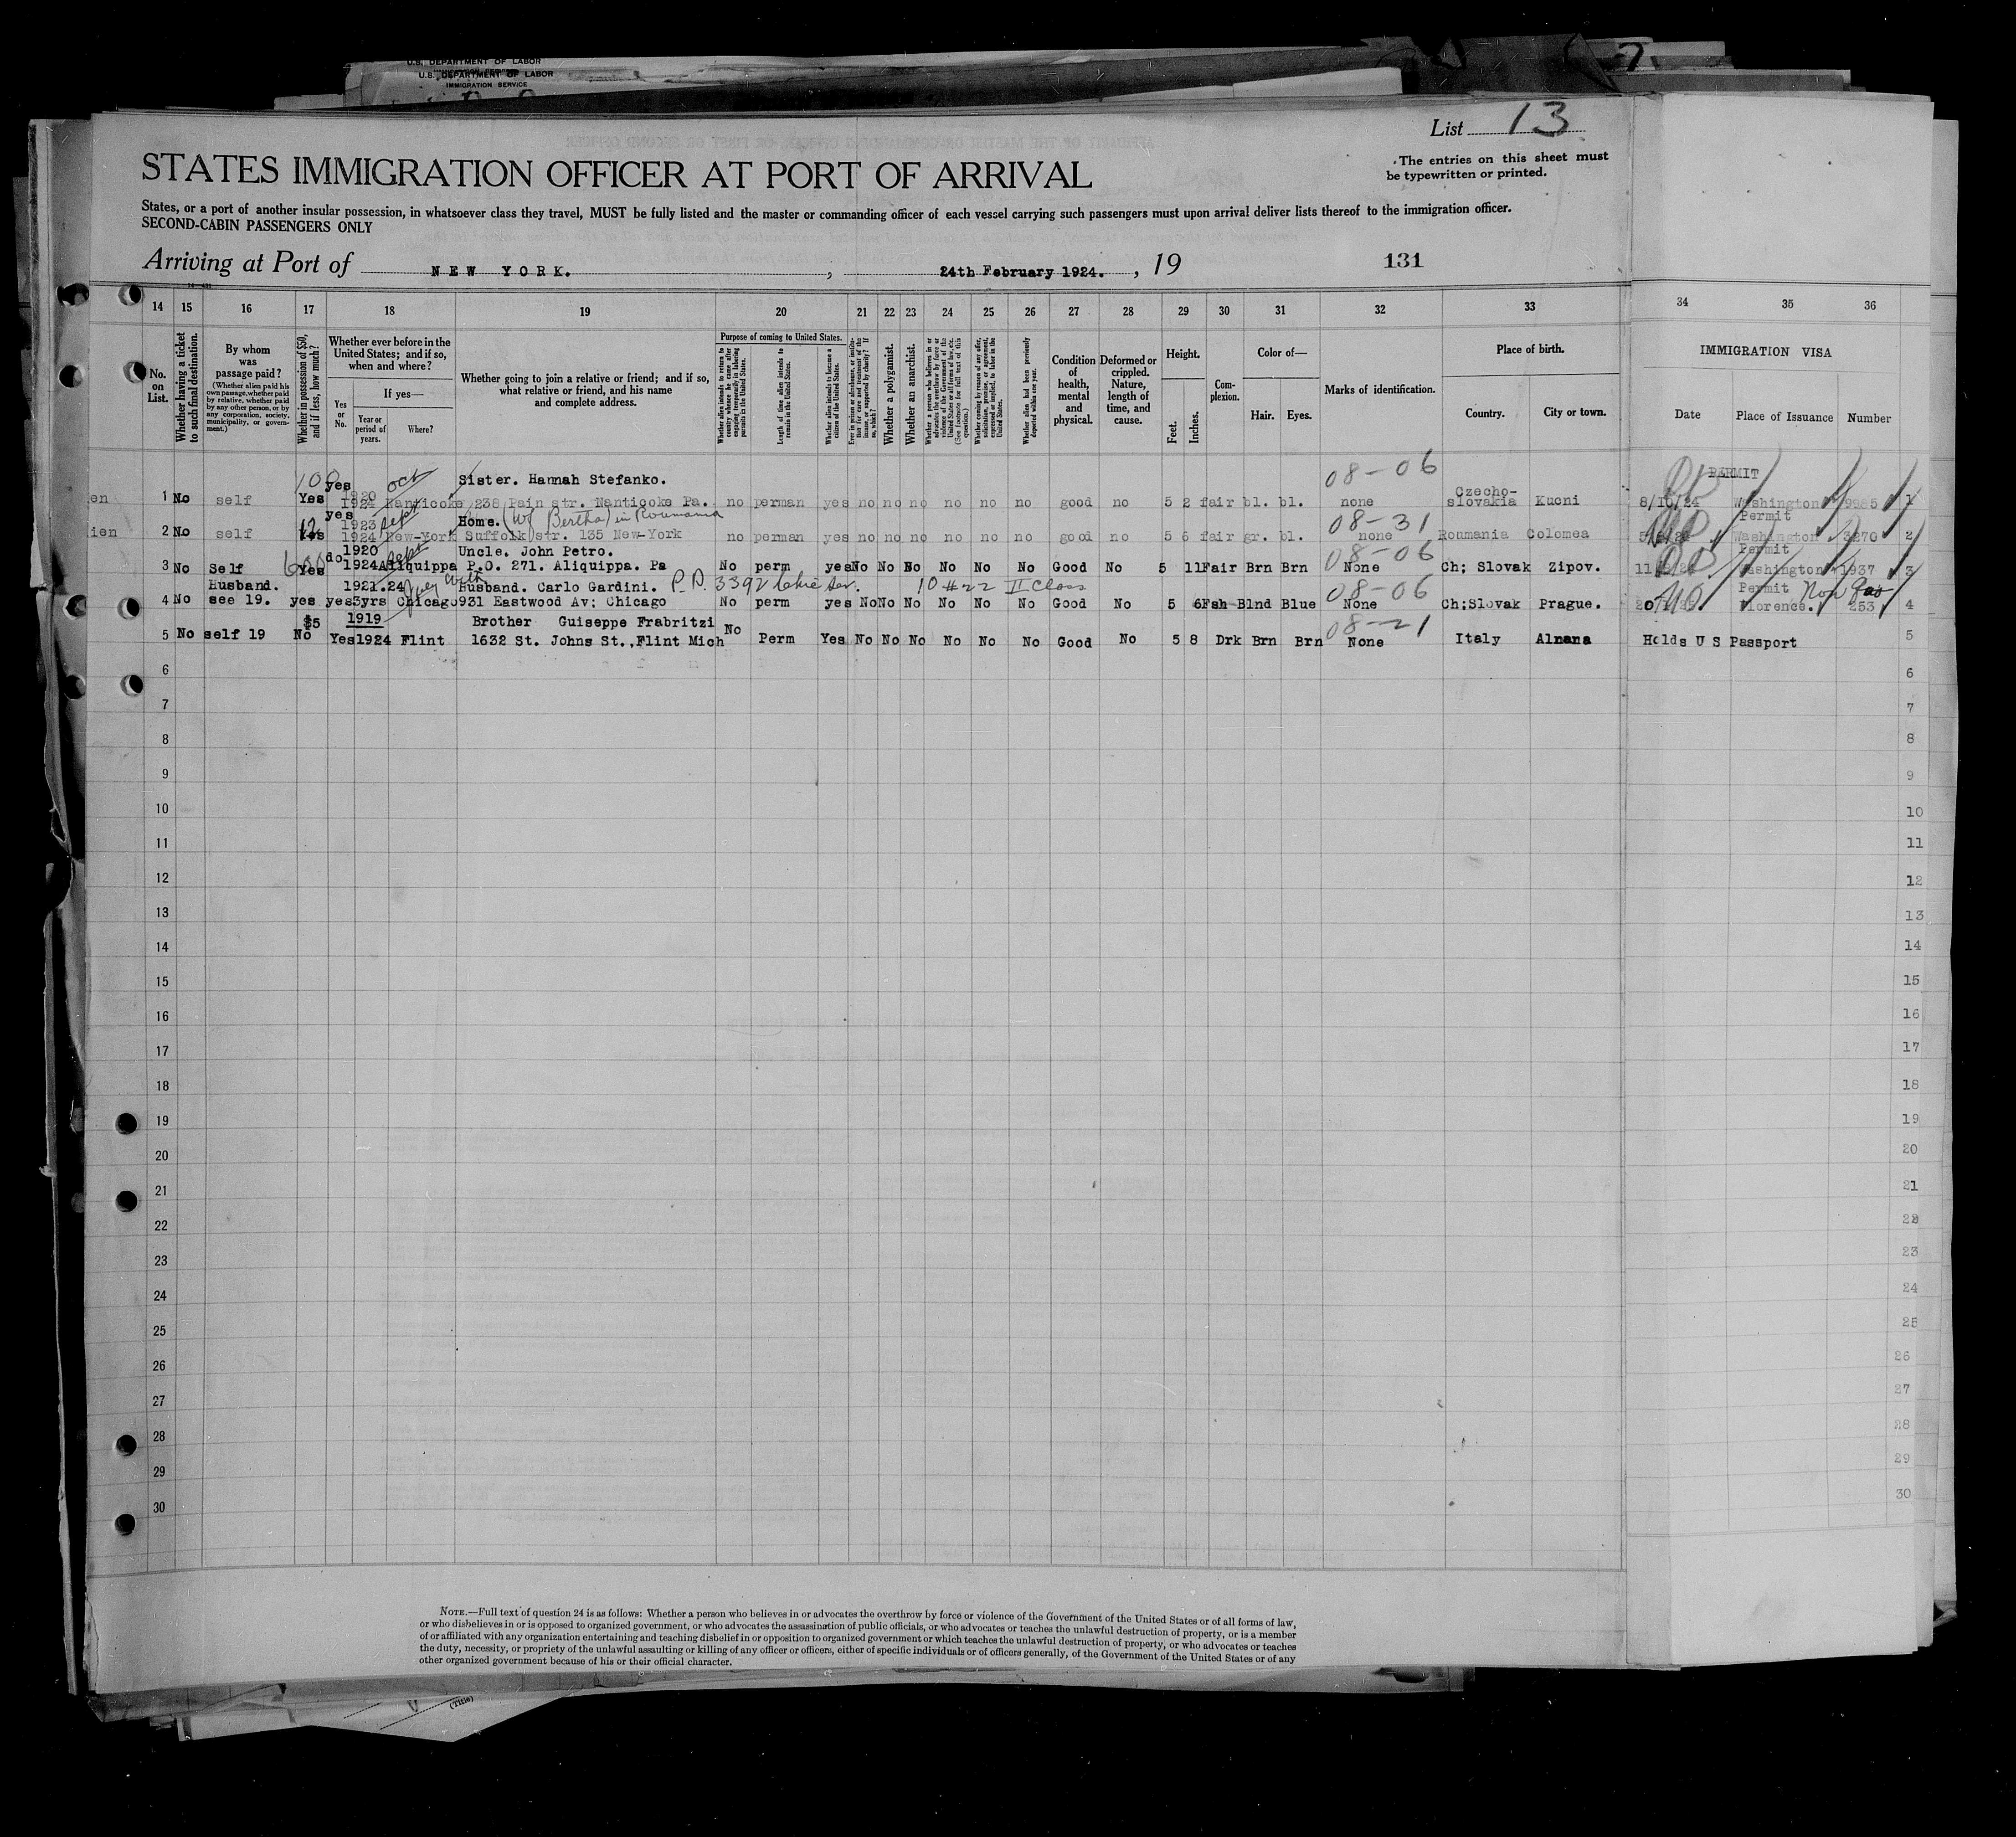 U.S. DEPARTMENT OF LABOR
U.S. DEPARTMENT OF LABOR
IMMIGRATION SERVICE
List 13
STATES IMMIGRATION OFFICER AT PORT OF ARRIVAL
The entries on this sheet must
be typewritten or printed.
States, or a port of another insular possession, in whatsoever class they travel, MUST be fully listed and the master or commanding officer of each vessel carrying such passengers must upon arrival deliver lists thereof to the immigration officer.
SECOND-CABIN PASSENGERS ONLY
Arriving at Port of NEW YORK. , 24th February 1924. , 19 131
14 15 16 17 18 19 20 21 22 23 24 25 26 27 28 29 30 31 32 33 34 35 36
No. on List.
Whether having a ticket to such final destination.
By whom was passage paid?
(Whether alien paid his own passage, whether paid by relative, whether paid by any other person, or by any corporation, society, municipality, or government.)
Whether in possession of $50, and if less, how much?
Whether ever before in the United States; and if so, when and where?
Yes or No.
If yes—
Year or period of years.
Where?
Whether going to join a relative or friend; and if so, what relative or friend, and his name and complete address.
Purpose of coming to United States.
Whether alien intends to return to country whence he came after engaging temporarily in laboring pursuits in the United States.
Length of time alien intends to remain in the United States.
Whether alien intends to become a citizen of the United States.
Ever in prison or almshouse, or institution for care and treatment of the insane, or supported by charity? If so, which?
Whether a polygamist.
Whether an anarchist.
Whether a person who believes in or advocates the overthrow by force or violence of the Government of the United States or all forms of law, etc. (See footnote for full text of this question.)
Whether coming by reason of any offer, solicitation, promise, or agreement, expressed or implied, to labor in the United States.
Whether alien had been previously deported within one year.
Condition of health, mental and physical.
Deformed or crippled. Nature, length of time, and cause.
Height.
Feet. Inches.
Complexion.
Color of—
Hair. Eyes.
Marks of identification.
Place of birth.
Country. City or town.
IMMIGRATION VISA
Date Place of Issuance Number
100 yes 1920 oct Sister. Hannah Stefanko. 08-06 Czecho- PERMIT
en 1 No self Yes 1924 Nanticoke 238 Pain str. Nanticoke Pa. no perman yes no no no no no no good no 5 2 fair bl. bl. none slovakia Kucni 8/10/24 Washington 9985 1
12 yes 1923 sept Home. (Wf Bertha) in Roumania 08-31 Permit
lien 2 No self Yes 1924 New-York Suffolk str. 135 New-York no perman yes no no no no no no good no 5 6 fair gr. bl. none Roumania Colomea Washington 3270 2
600 do 1920 Sept Uncle. John Petro. 08-06 Permit
3 No Self Yes 1924 Aliquippa P.O. 271. Aliquippa. Pa No perm yes No No No No No No Good No 5 11 Fair Brn Brn None Ch; Slovak Zipov. Washington 1937 3
Husband. 1921.24 Husband. Carlo Gardini. P.D. 3392 10 #22 II Class 08-06 Permit Non
4 No see 19. yes yes 3yrs Chicago 931 Eastwood Av; Chicago No perm yes No No No No No No Good No 5 6 Fsh Blnd Blue None Ch;Slovak Prague. Florence. 253 4
$5 1919 Brother Guiseppe Frabritzi 08-21
5 No self 19 No Yes 1924 Flint 1632 St. Johns St.,Flint Mich No Perm Yes No No No No No No Good No 5 8 Drk Brn Brn None Italy Alnana Holds U S Passport 5
6 6
7 7
8 8
9 9
10 10
11 11
12 12
13 13
14 14
15 15
16 16
17 17
18 18
19 19
20 20
21 21
22 22
23 23
24 24
25 25
26 26
27 27
28 28
29 29
30 30
NOTE.—Full text of question 24 is as follows: Whether a person who believes in or advocates the overthrow by force or violence of the Government of the United States or of all forms of law,
or who disbelieves in or is opposed to organized government, or who advocates the assassination of public officials, or who advocates or teaches the unlawful destruction of property, or is a member
of or affiliated with any organization entertaining and teaching disbelief in or opposition to organized government or which teaches the unlawful destruction of property, or who advocates or teaches
the duty, necessity, or propriety of the unlawful assaulting or killing of any officer or officers, either of specific individuals or of officers generally, of the Government of the United States or of any
other organized government because of his or their official character.
(Title)